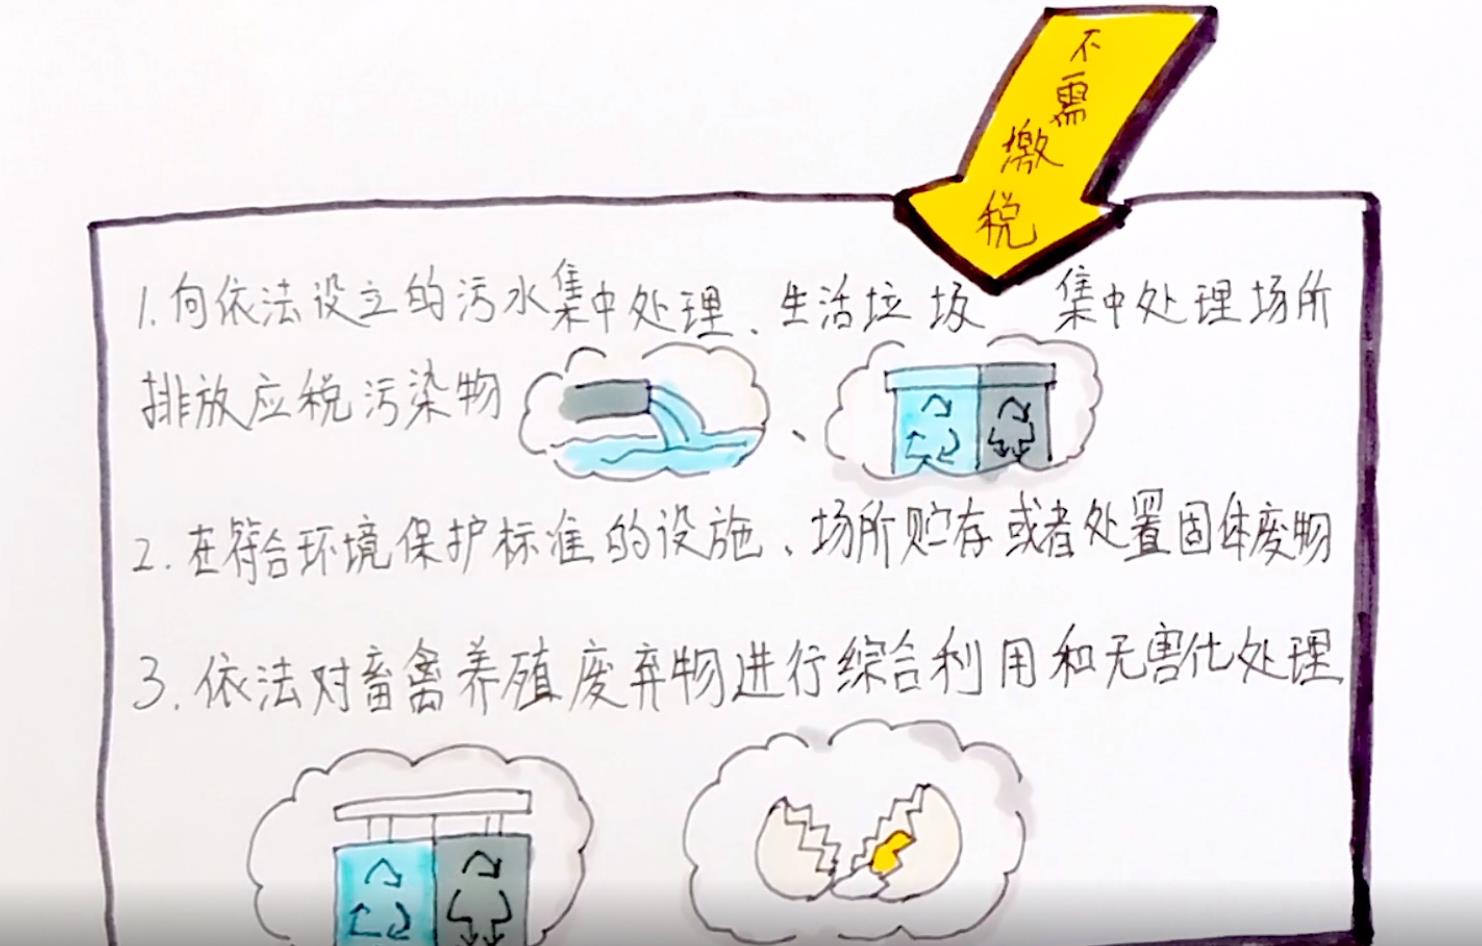 不需缴税
1.向依法设立的污水集中处理、生活垃圾 集中处理场所
排放应税污染物 、
2.在符合环境保护标准的设施、场所贮存或者处置固体废物
3.依法对畜禽养殖废弃物进行综合利用和无害化处理